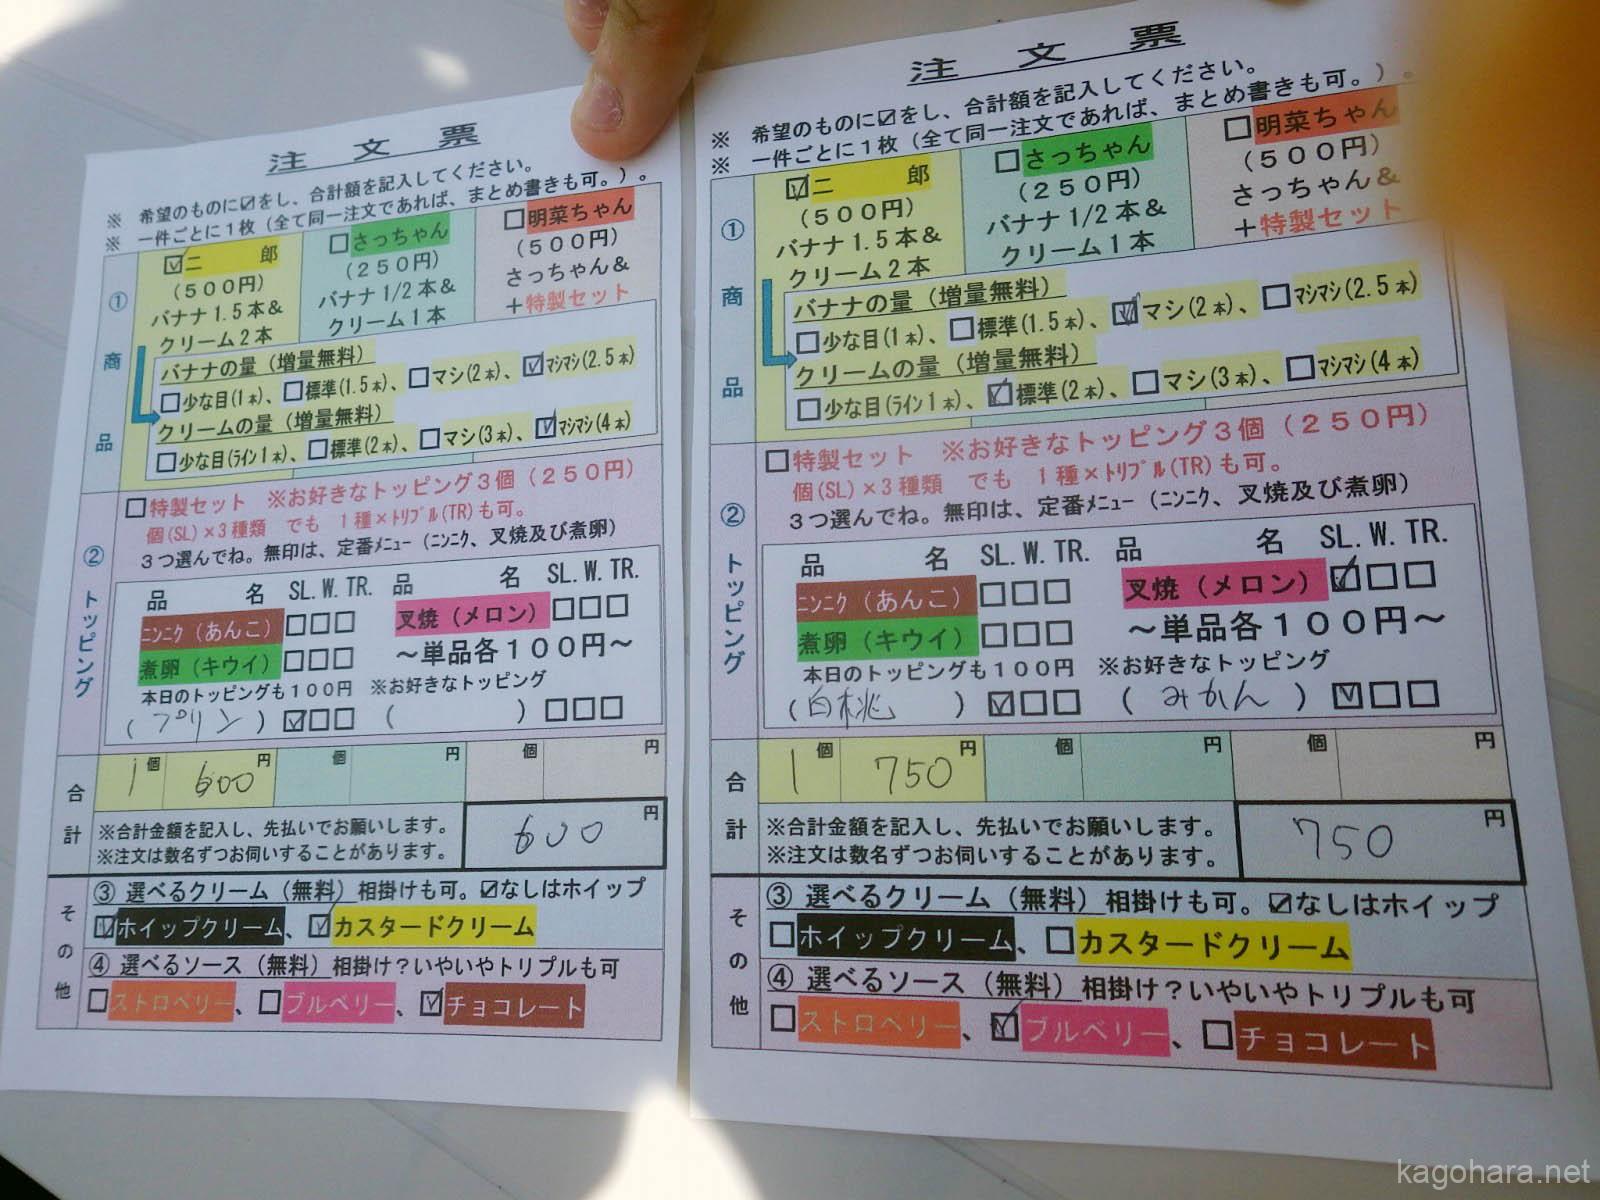 注 文 票
※ 希望のものに☑をし、合計額を記入してください。
※ 一件ごとに1枚(全て同一注文であれば、まとめ書きも可。)。
① 商 品
☑二 郎
(500円)
バナナ1.5本&
クリーム2本
□さっちゃん
(250円)
バナナ1/2本&
クリーム1本
□明菜ちゃん
(500円)
さっちゃん&
+特製セット
バナナの量(増量無料)
□少な目(1本)、□標準(1.5本)、□マシ(2本)、☑マシマシ(2.5本)
クリームの量(増量無料)
□少な目(ライン1本)、□標準(2本)、□マシ(3本)、☑マシマシ(4本)
② トッピング
□特製セット ※お好きなトッピング3個(250円)
個(SL)×3種類 でも 1種×トリプル(TR)も可。
3つ選んでね。無印は、定番メニュー(ニンニク、叉焼及び煮卵)
品 名 SL. W. TR. 品 名 SL. W. TR.
ニンニク(あんこ)□□□ 叉焼(メロン)□□□
煮卵(キウイ)□□□ ～単品各100円～
本日のトッピングも100円 ※お好きなトッピング
(プリン)☑□□ ( )□□□
合 計
1個 600円 個 円 個 円
※合計金額を記入し、先払いでお願いします。
※注文は数名ずつお伺いすることがあります。
600円
その他
③ 選べるクリーム(無料)相掛けも可。☑なしはホイップ
☑ホイップクリーム、☑カスタードクリーム
④ 選べるソース(無料)相掛け?いやいやトリプルも可
□ストロベリー、□ブルベリー、☑チョコレート
注 文 票
※ 希望のものに☑をし、合計額を記入してください。
※ 一件ごとに1枚(全て同一注文であれば、まとめ書きも可。)。
① 商 品
☑二 郎
(500円)
バナナ1.5本&
クリーム2本
□さっちゃん
(250円)
バナナ1/2本&
クリーム1本
□明菜ちゃん
(500円)
さっちゃん&
+特製セット
バナナの量(増量無料)
□少な目(1本)、□標準(1.5本)、☑マシ(2本)、□マシマシ(2.5本)
クリームの量(増量無料)
□少な目(ライン1本)、☑標準(2本)、□マシ(3本)、□マシマシ(4本)
② トッピング
□特製セット ※お好きなトッピング3個(250円)
個(SL)×3種類 でも 1種×トリプル(TR)も可。
3つ選んでね。無印は、定番メニュー(ニンニク、叉焼及び煮卵)
品 名 SL. W. TR. 品 名 SL. W. TR.
ニンニク(あんこ)□□□ 叉焼(メロン)☑□□
煮卵(キウイ)□□□ ～単品各100円～
本日のトッピングも100円 ※お好きなトッピング
(白桃)☑□□ (みかん)☑□□
合 計
1個 750円 個 円 個 円
※合計金額を記入し、先払いでお願いします。
※注文は数名ずつお伺いすることがあります。
750円
その他
③ 選べるクリーム(無料)相掛けも可。☑なしはホイップ
□ホイップクリーム、□カスタードクリーム
④ 選べるソース(無料)相掛け?いやいやトリプルも可
□ストロベリー、☑ブルベリー、□チョコレート
kagohara.net